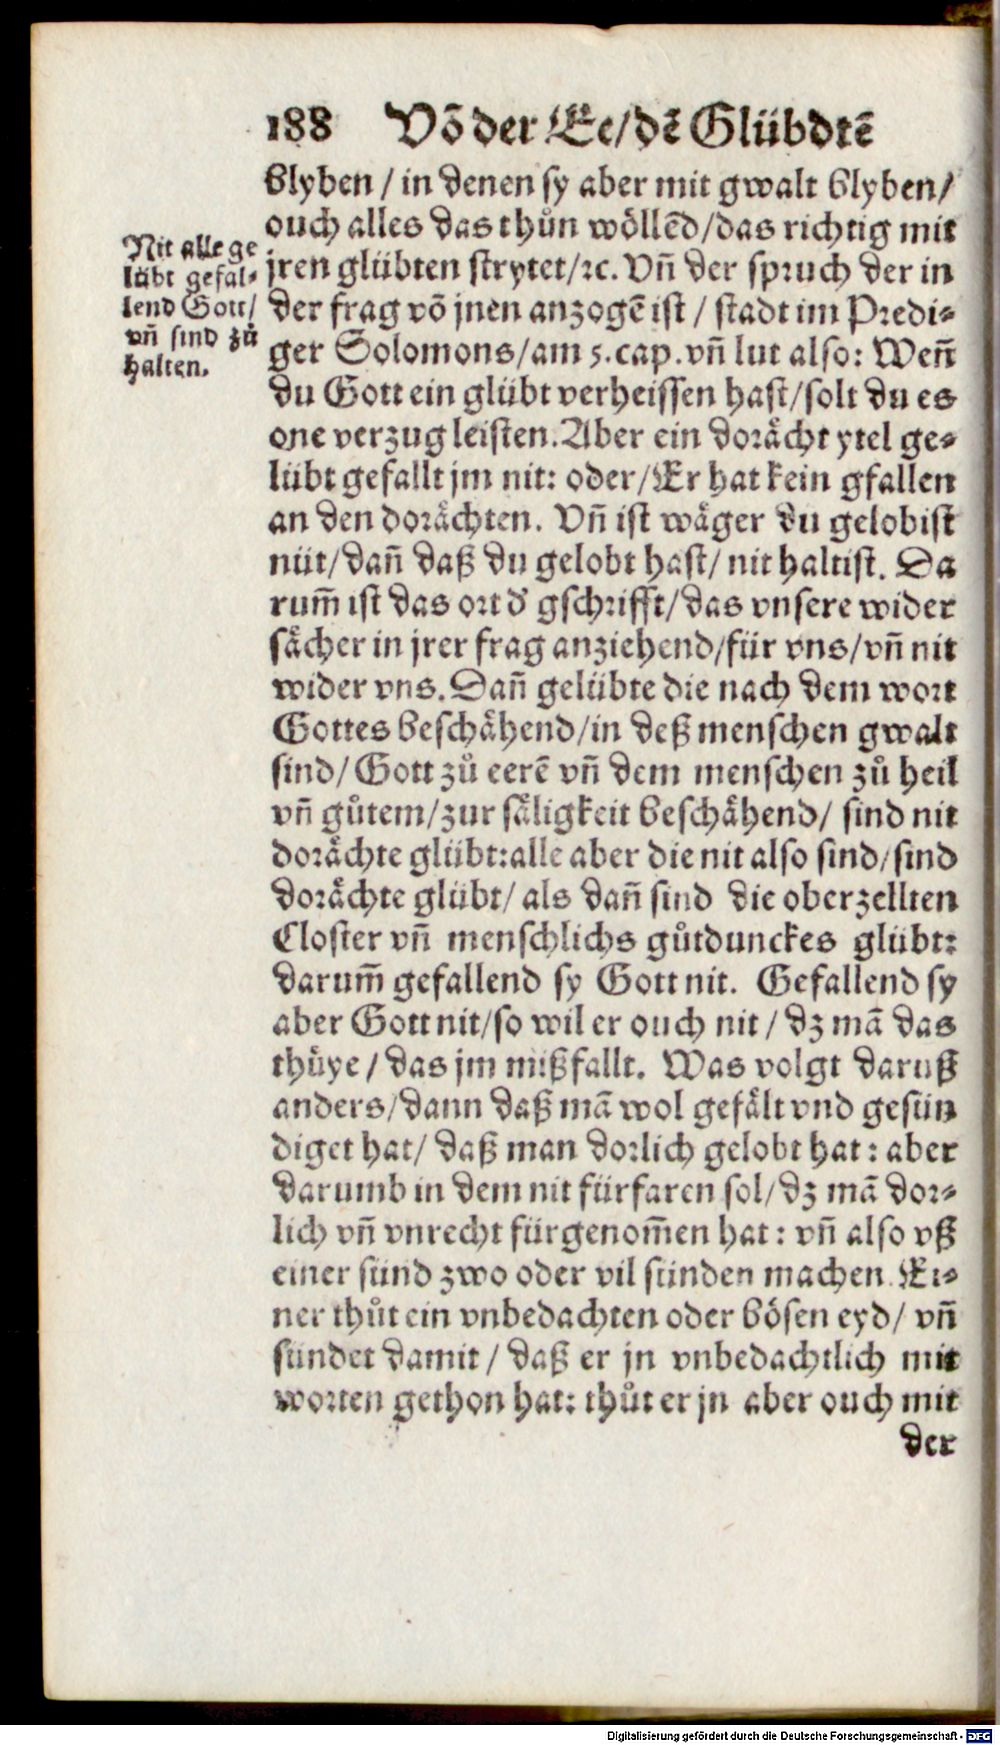 188 Võ der Ee/dẽ Glübdtẽ
blyben / in denen sy aber mit gwalt blyben/
ouch alles das thůn wöllẽd/das richtig mit
jren glübten strytet/ꝛc. Vñ der spruch der in
der frag võ jnen anzogẽ ist / stadt im Predi⸗
ger Solomons/am 5. cap. vñ lut also: Weñ
du Gott ein glübt verheissen hast/solt du es
one verzug leisten. Aber ein doraͤcht ytel ge⸗
lübt gefallt jm nit: oder/Er hat kein gfallen
an den doraͤchten. Vñ ist waͤger du gelobist
nüt/dañ daß du gelobt hast/ nit haltist. Da
rum̃ ist das ort d' gschrifft/das vnsere wider
saͤcher in jrer frag anziehend/für vns/vñ nit
wider vns. Dañ gelübte die nach dem wort
Gottes beschaͤhend/in deß menschen gwalt
sind/ Gott zů eerẽ vñ dem menschen zů heil
vñ gůtem/zur saͤligkeit beschaͤhend/ sind nit
doraͤchte glübt:alle aber die nit also sind/sind
doraͤchte glübt/ als dañ sind die oberzellten
Closter vñ menschlichs gůtdunckes glübt:
darum̃ gefallend sy Gott nit. Gefallend sy
aber Gott nit/so wil er ouch nit / dz mã das
thuͤye / das jm mißfallt. Was volgt daruß
anders/dann daß mã wol gefaͤlt vnd gesün
diget hat/ daß man dorlich gelobt hat : aber
darumb in dem nit fürfaren sol/dz mã dor⸗
lich vñ vnrecht fürgenom̃en hat : vñ also vß
einer sünd zwo oder vil sünden machen. Ei⸗
ner thůt ein vnbedachten oder boͤsen eyd/ vñ
sündet damit / daß er jn vnbedachtlich mit
worten gethon hat: thůt er jn aber ouch mit
der
Nit alle ge
lübt gefal⸗
lend Gott/
vñ sind zů
halten.
Digitalisierung gefördert durch die Deutsche Forschungsgemeinschaft - DFG